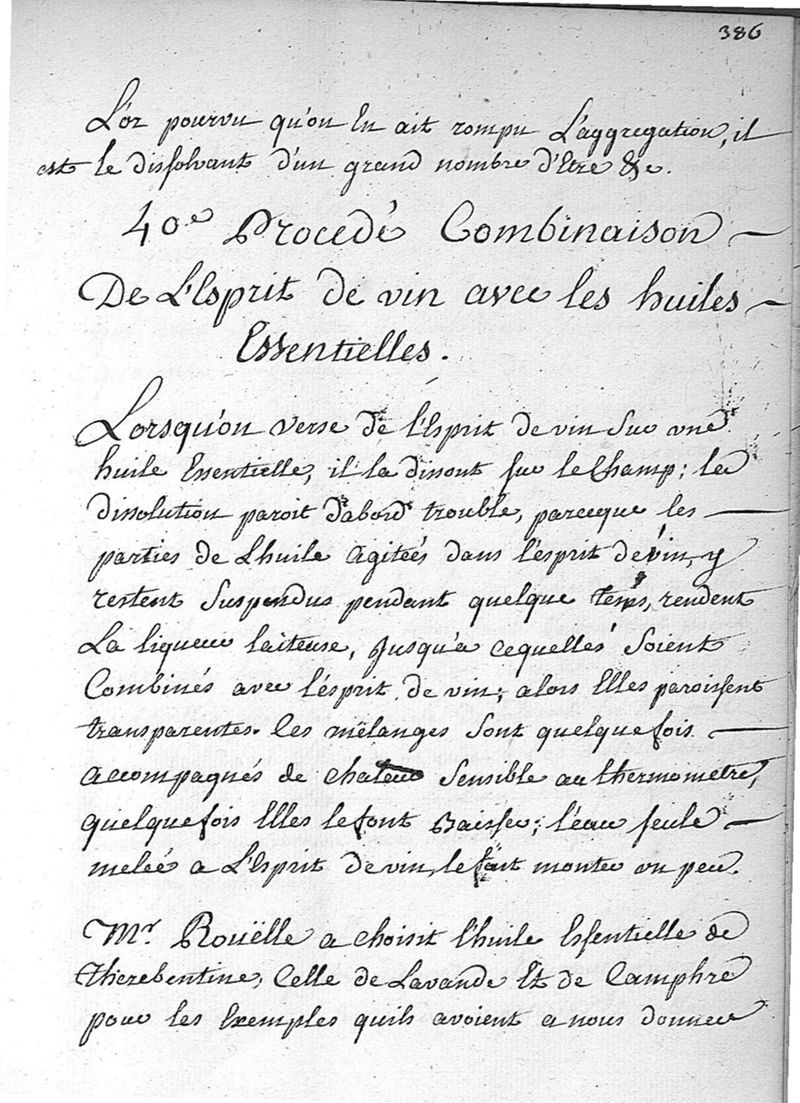 386
L'or pourvu qu'on En ait rompu L'aggregation, il
est le dissolvant d'un grand nombre d'Etre &c.
40e Procedé Combinaison
De L'Esprit de vin avec les huiles
Essentielles.
Lorsqu'on verse de l'Esprit de vin sur une
huile Essentielle, il la dissout sur le Champ; la
dissolution paroit d'abord trouble, parceque les
parties de L'huile agitées dans l'esprit de vin, y
restent Suspendus pendant quelque tems, rendent
La liqueur laiteuse, Jusqu'a cequelles Soient
Combinés avec l'ésprit de vin; alors Elles paroissent
transparentes. Ces mélanges Sont quelque fois
accompagnés de chaleur Sensible au thermometre,
quelque fois Elles le font Baisser; l'eau seule
melée a L'Esprit de vin, le fait monter un peu.
Mr. Rouëlle a choisit l'huile Essentielle de
Therebentine, Celle de Lavande Et de Camphre
pour les Exemples quils avoient a nous donner